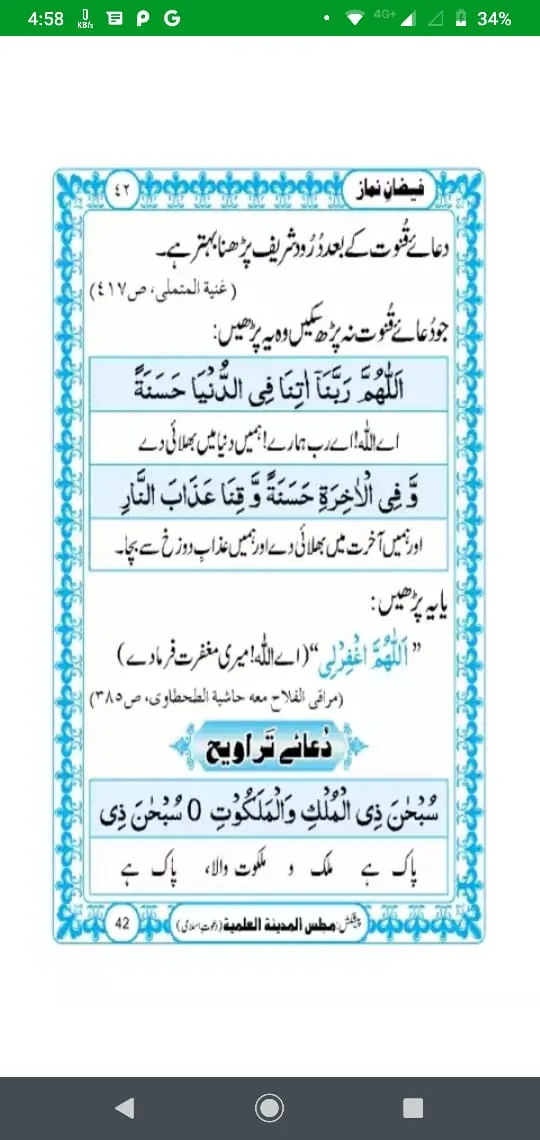 4:58 0 KB/s P G 4G+ 34%
فیضانِ نماز ٤٢
دعائے قُنوت کے بعد دُرُود شریف پڑھنا بہتر ہے۔
(غنیة المتملی، ص٤١٧)
جو دُعائے قُنوت نہ پڑھ سکیں وہ یہ پڑھیں:
اَللّٰهُمَّ رَبَّنَاۤ اٰتِنَا فِی الدُّنْیَا حَسَنَةً
اے اللہ! اے رب ہمارے! ہمیں دنیا میں بھلائی دے
وَّ فِی الْاٰخِرَةِ حَسَنَةً وَّ قِنَا عَذَابَ النَّارِ
اور ہمیں آخرت میں بھلائی دے اور ہمیں عذابِ دوزخ سے بچا۔
یا یہ پڑھیں:
”اَللّٰهُمَّ اغْفِرْلِی“ (اے اللہ! میری مغفرت فرما دے)
(مراقی الفلاح معه حاشیة الطحطاوی، ص٣٨٥)
دُعائے تَراویح
سُبْحٰنَ ذِی الْمُلْكِ وَالْمَلَكُوْتِ 0 سُبْحٰنَ ذِی
پاک ہے ملک و ملکوت والا، پاک ہے
پیشکش: مجلس المدینة العلمیة (دعوتِ اسلامی) 42